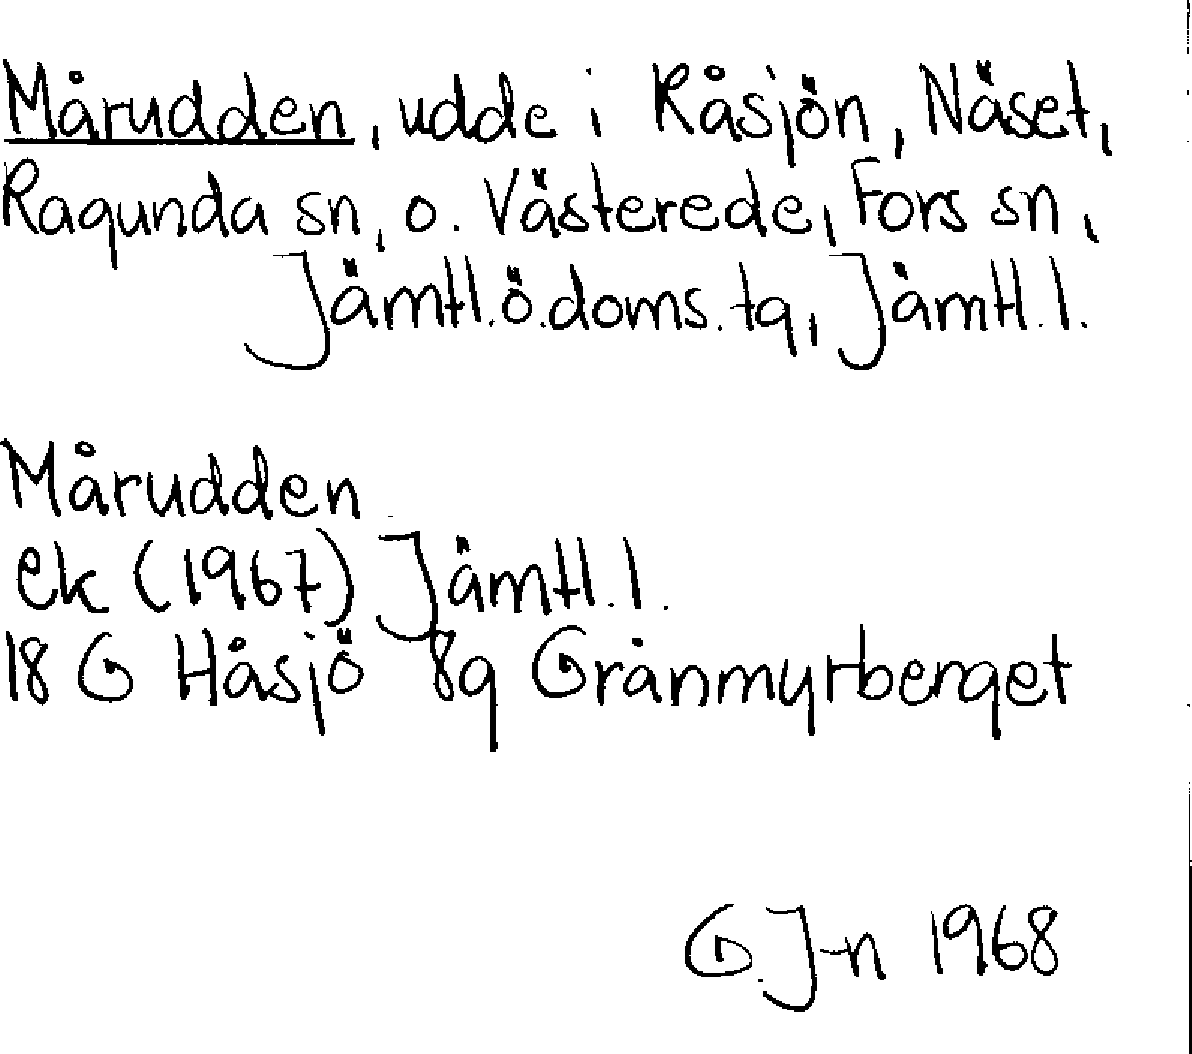 Mårudden, udde i Råsjön, Näset,
Ragunda sn, o. Västerede, Fors sn,
Jämtl.ö.doms.tg, Jämtl.l.
Mårudden
ek (1967) Jämtl.l.
18 G Håsjö 8g Granmyrberget
G.J-n 1968